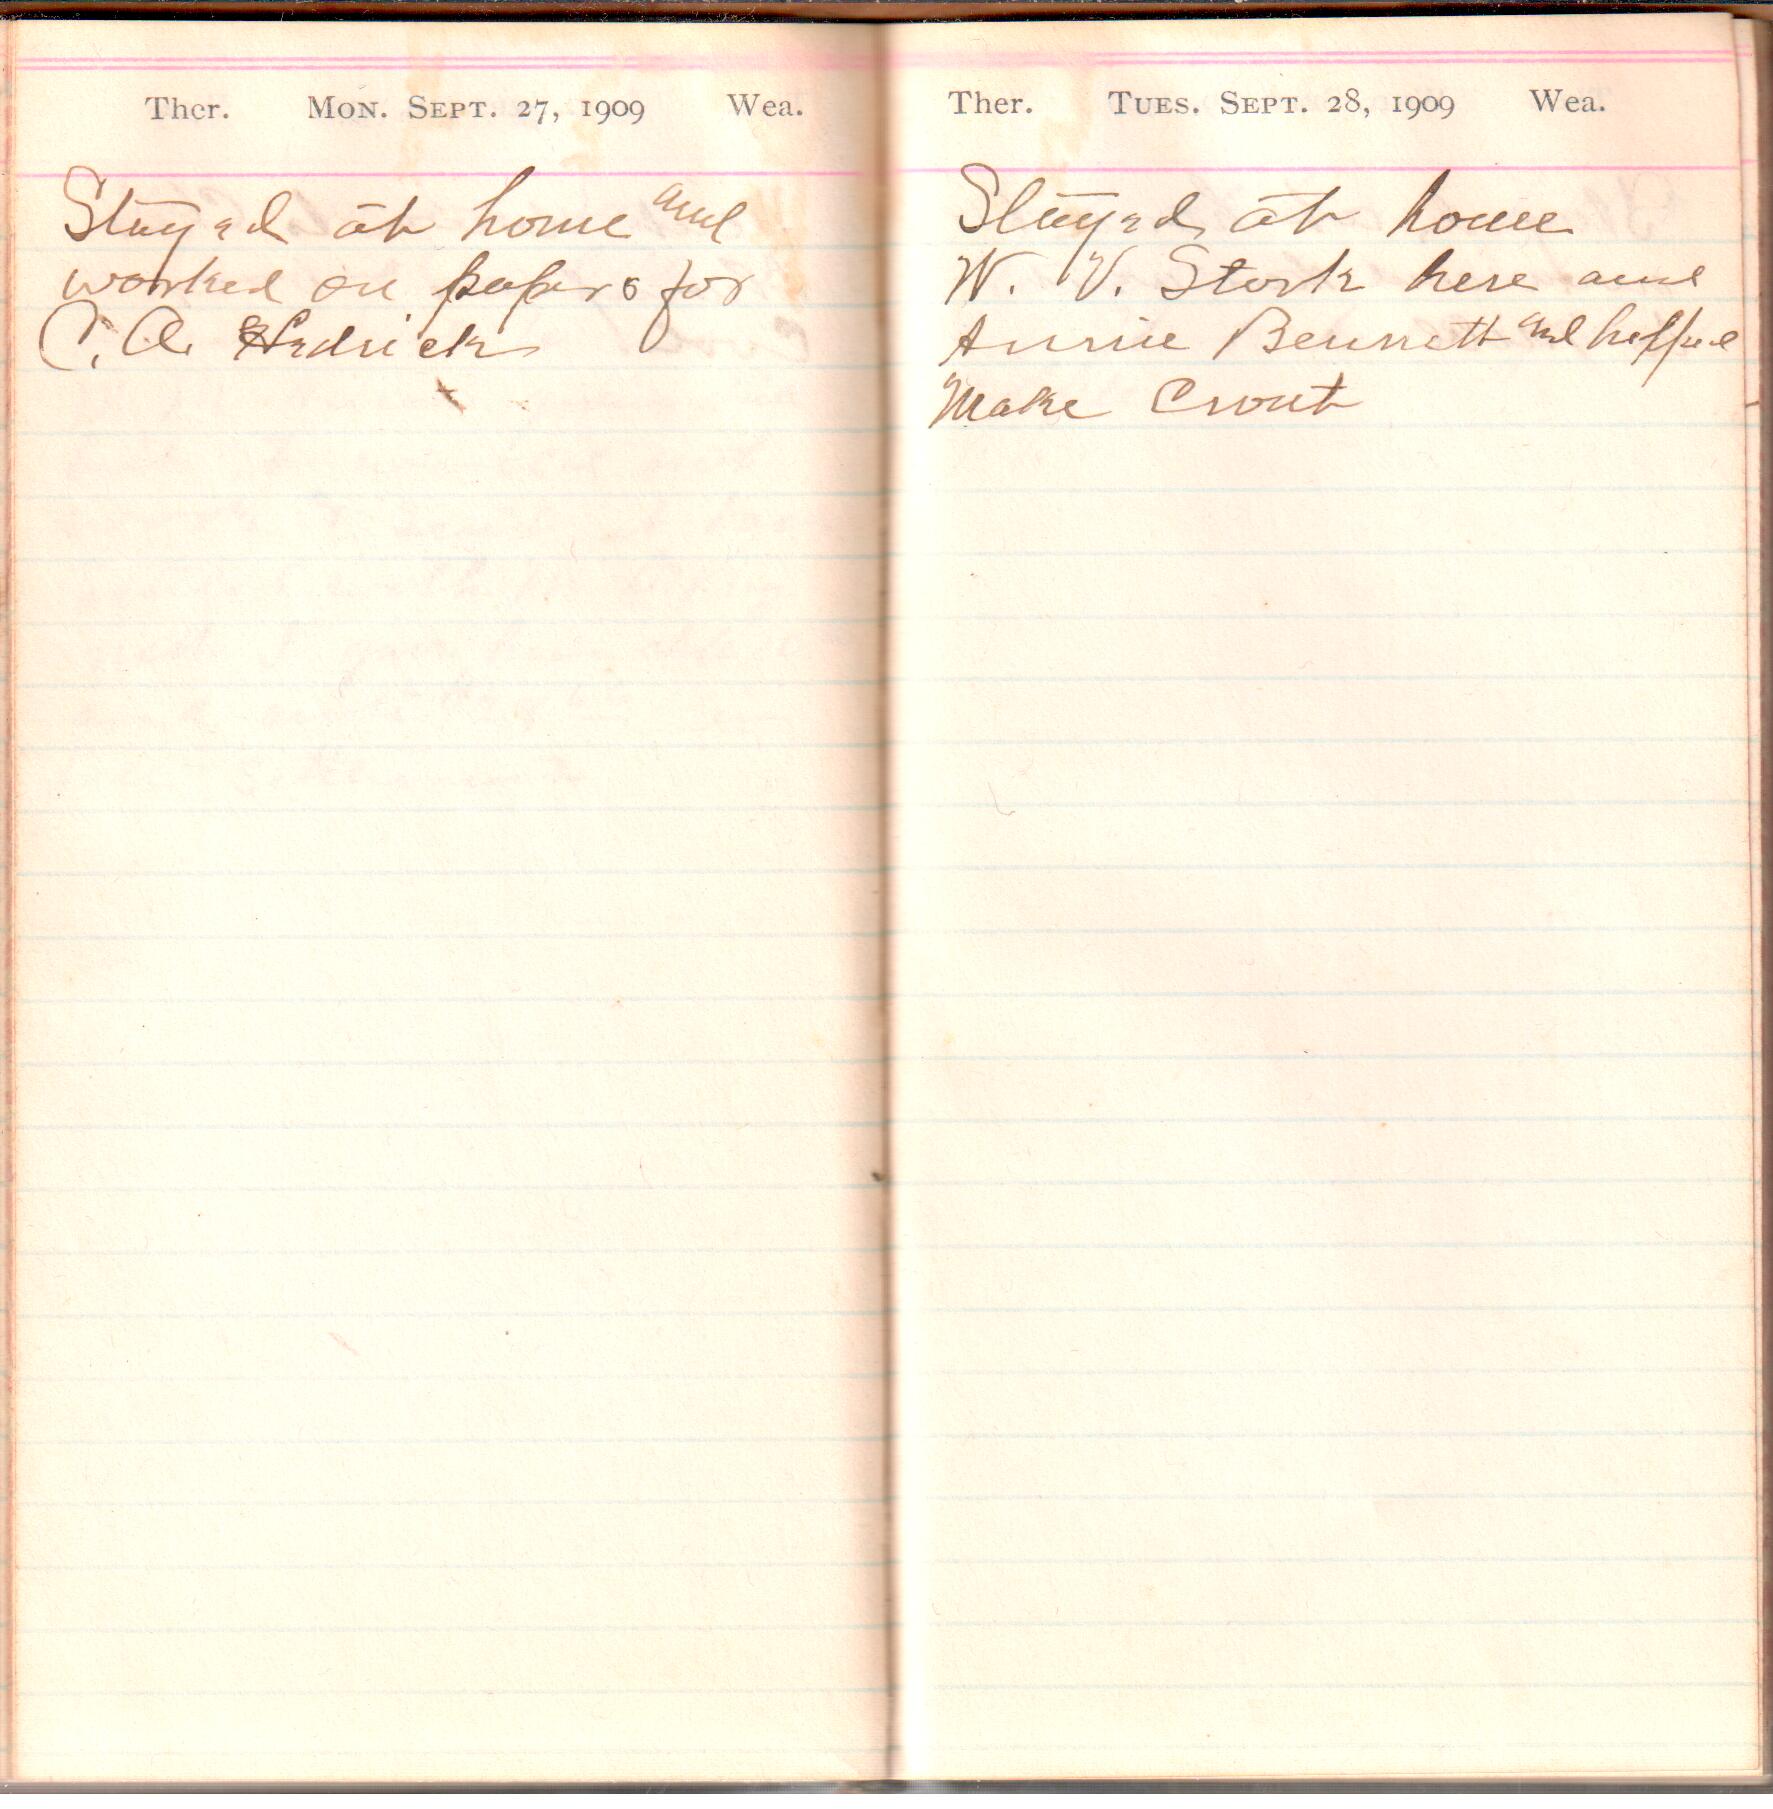 Ther. Mon. Sept. 27, 1909 Wea.
Stayed at home and
worked on papers for
C. A. Hedrick
Ther. Tues. Sept. 28, 1909 Wea.
Stayed at home
W. V. Stork here and
Annie Bennett and helped
Make Crout